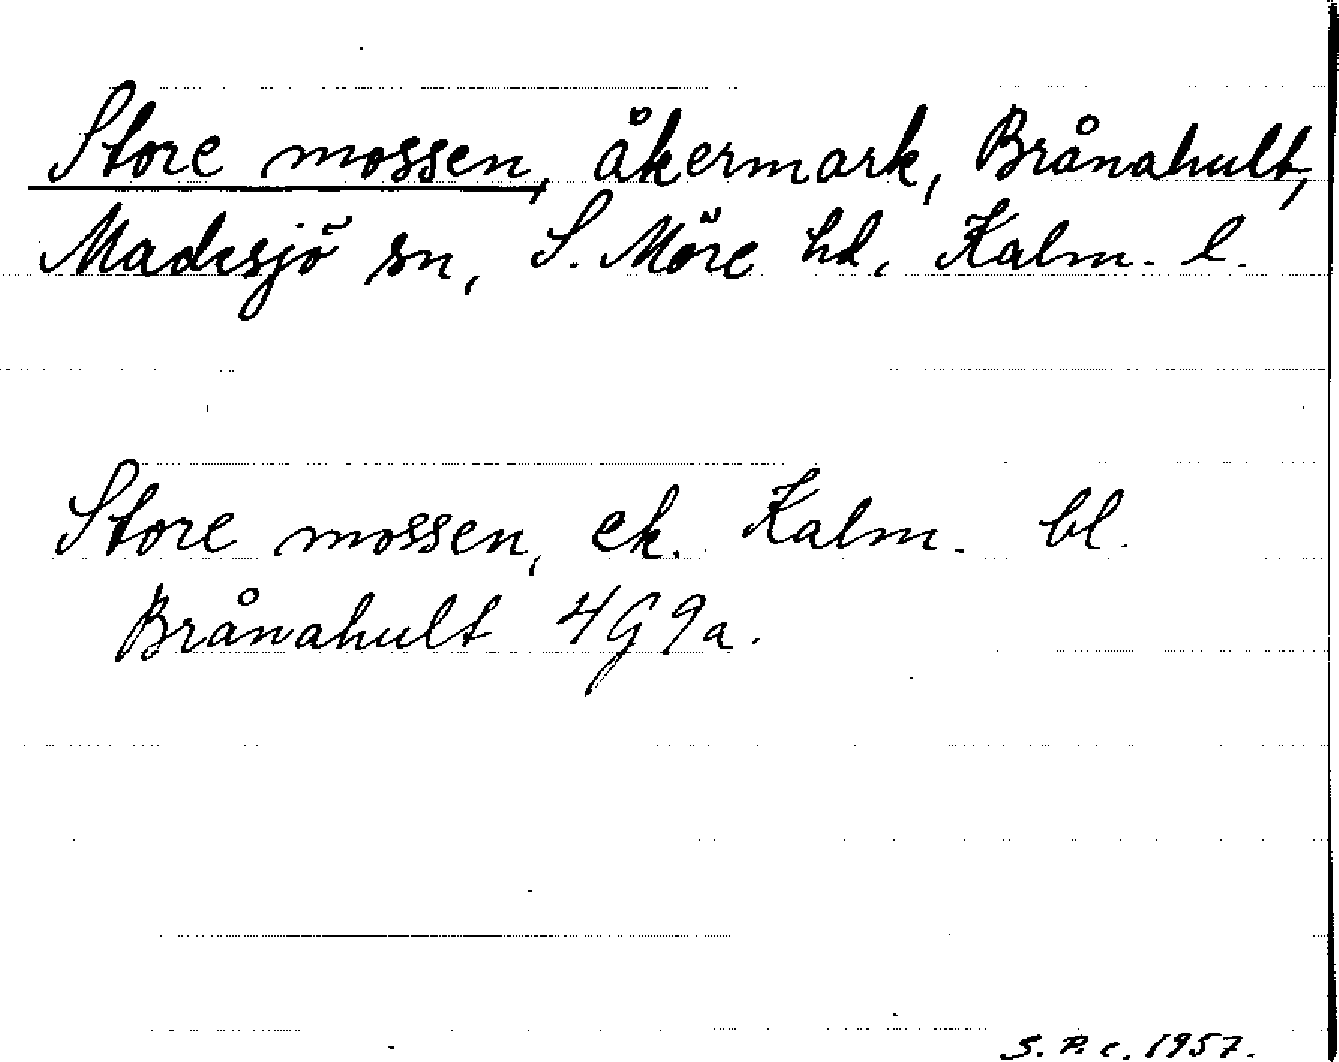 Store mossen, åkermark, Brånahult,
Madesjö sn, S. Möre hd, Kalm. l.
Store mossen, ek. Kalm. bl.
Brånahult 4G9a.
S. P. c. 1957.